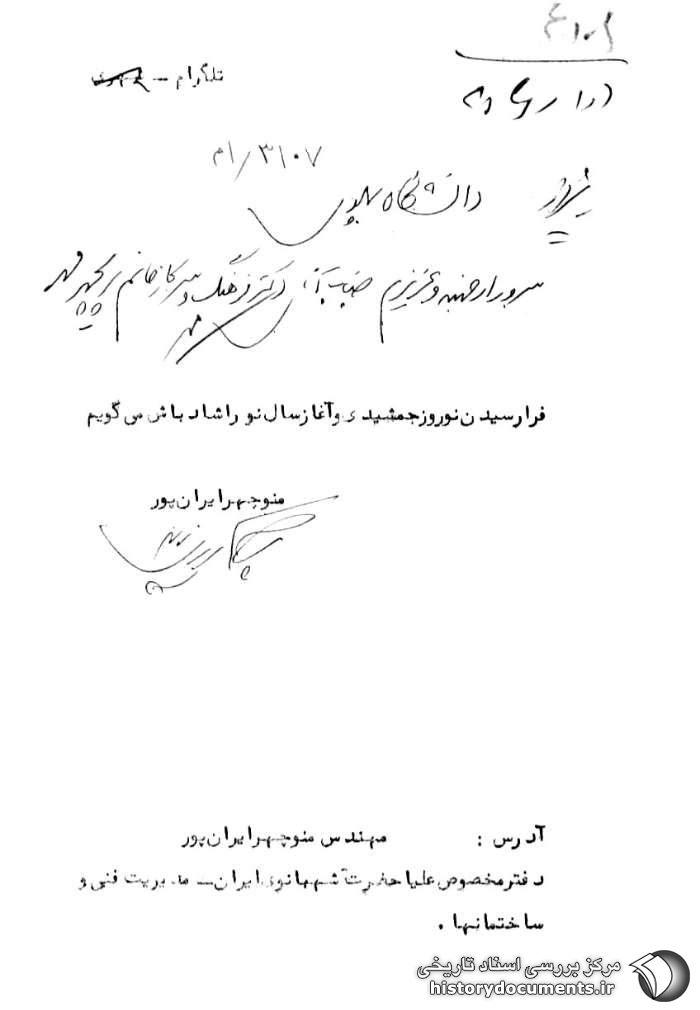 تلگرام –
۳۱۰۷/رم
شیراز دانشگاه پهلوی
سرور ارجمند و عزیزم جناب آقای دکتر فرهنگ مهر و سرکار خانم پریچهر مهر
فرارسیدن نوروز جمشیدی و آغاز سال نو را شادباش می گویم
منوچهر ایران پور
آدرس : مهندس منوچهر ایران پور
دفتر مخصوص علیا حضرت شهبانوی ایران – مدیریت فنی و
ساختمانها .
مرکز بررسی اسناد تاریخی
historydocuments.ir